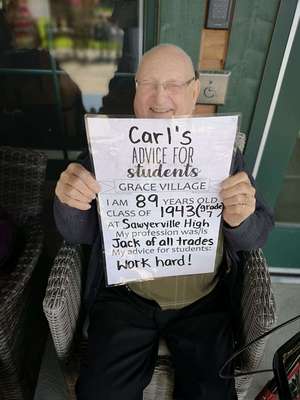 Carl's
ADVICE FOR
students
GRACE VILLAGE
I AM 89 YEARS OLD
CLASS OF 1943 (grade 7)
AT Sawyerville High
My profession was/is
Jack of all trades
My advice for students:
Work hard!